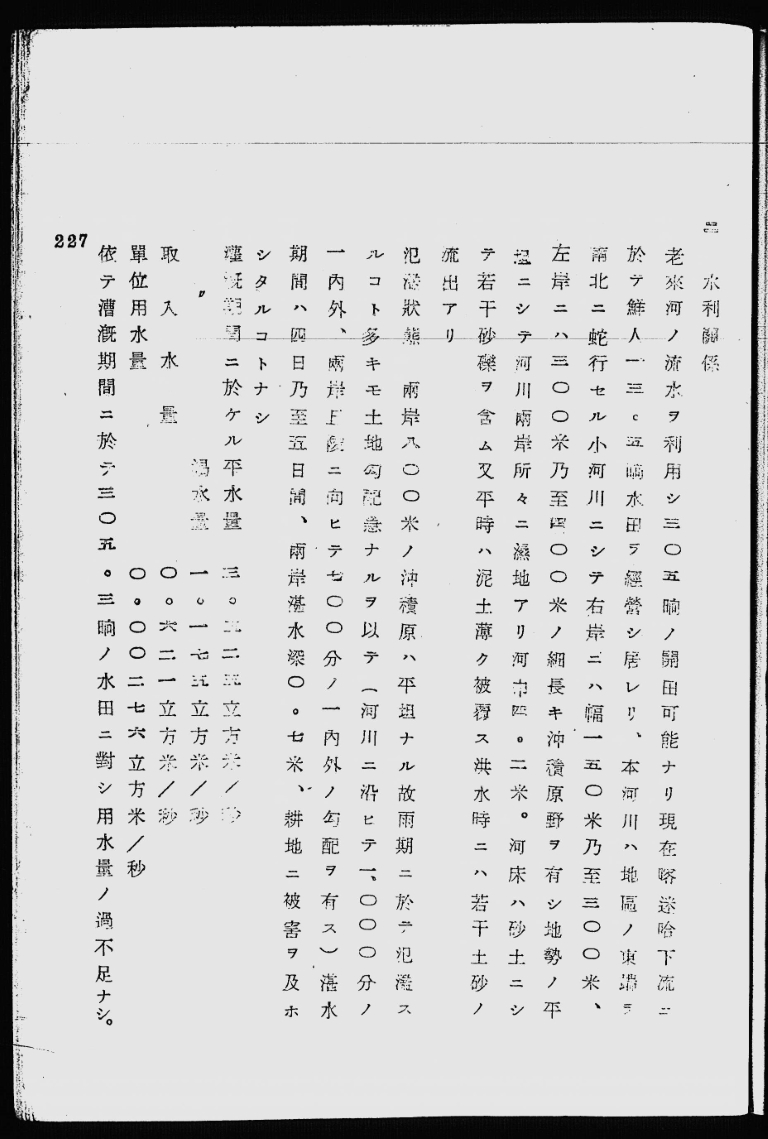 水利關係
老來河ノ流水ヲ利用シ三〇五晌ノ開田可能ナリ現在喀迷哈下流ニ
於テ鮮人一三。五晌水田ヲ經營シ居レリ、本河川ハ地區ノ東端ヲ
南北ニ蛇行セル小河川ニシテ右岸ニハ幅一五〇米乃至三〇〇米、
左岸ニハ三〇〇米乃至四〇〇米ノ細長キ沖積原野ヲ有シ地勢ノ平
坦ニシテ河川兩岸所々ニ濕地アリ河巾四。二米。河床ハ砂土ニシ
テ若干砂礫ヲ含ム又平時ハ泥土薄ク被覆ス洪水時ニハ若干土砂ノ
流出アリ
氾濫狀態 兩岸八〇〇米ノ沖積原ハ平坦ナル故雨期ニ於テ氾濫ス
ルコト多キモ土地勾配急ナルヲ以テ(河川ニ沿ヒテ一、〇〇〇分ノ
一內外、兩岸丘陵ニ向ヒテ七〇〇分ノ一內外ノ勾配ヲ有ス)湛水
期間ハ四日乃至五日間、兩岸湛水深〇。七米、耕地ニ被害ヲ及ホ
シタルコトナシ
灌漑期間ニ於ケル平水量 三。三二五立方米/秒
〃 渇水量 一。一七五立方米/秒
取入水量 〇。六二一立方米/秒
單位用水量 〇。〇〇二七六立方米/秒
依テ漕漑期間ニ於テ三〇五。三晌ノ水田ニ對シ用水量ノ過不足ナシ。
227